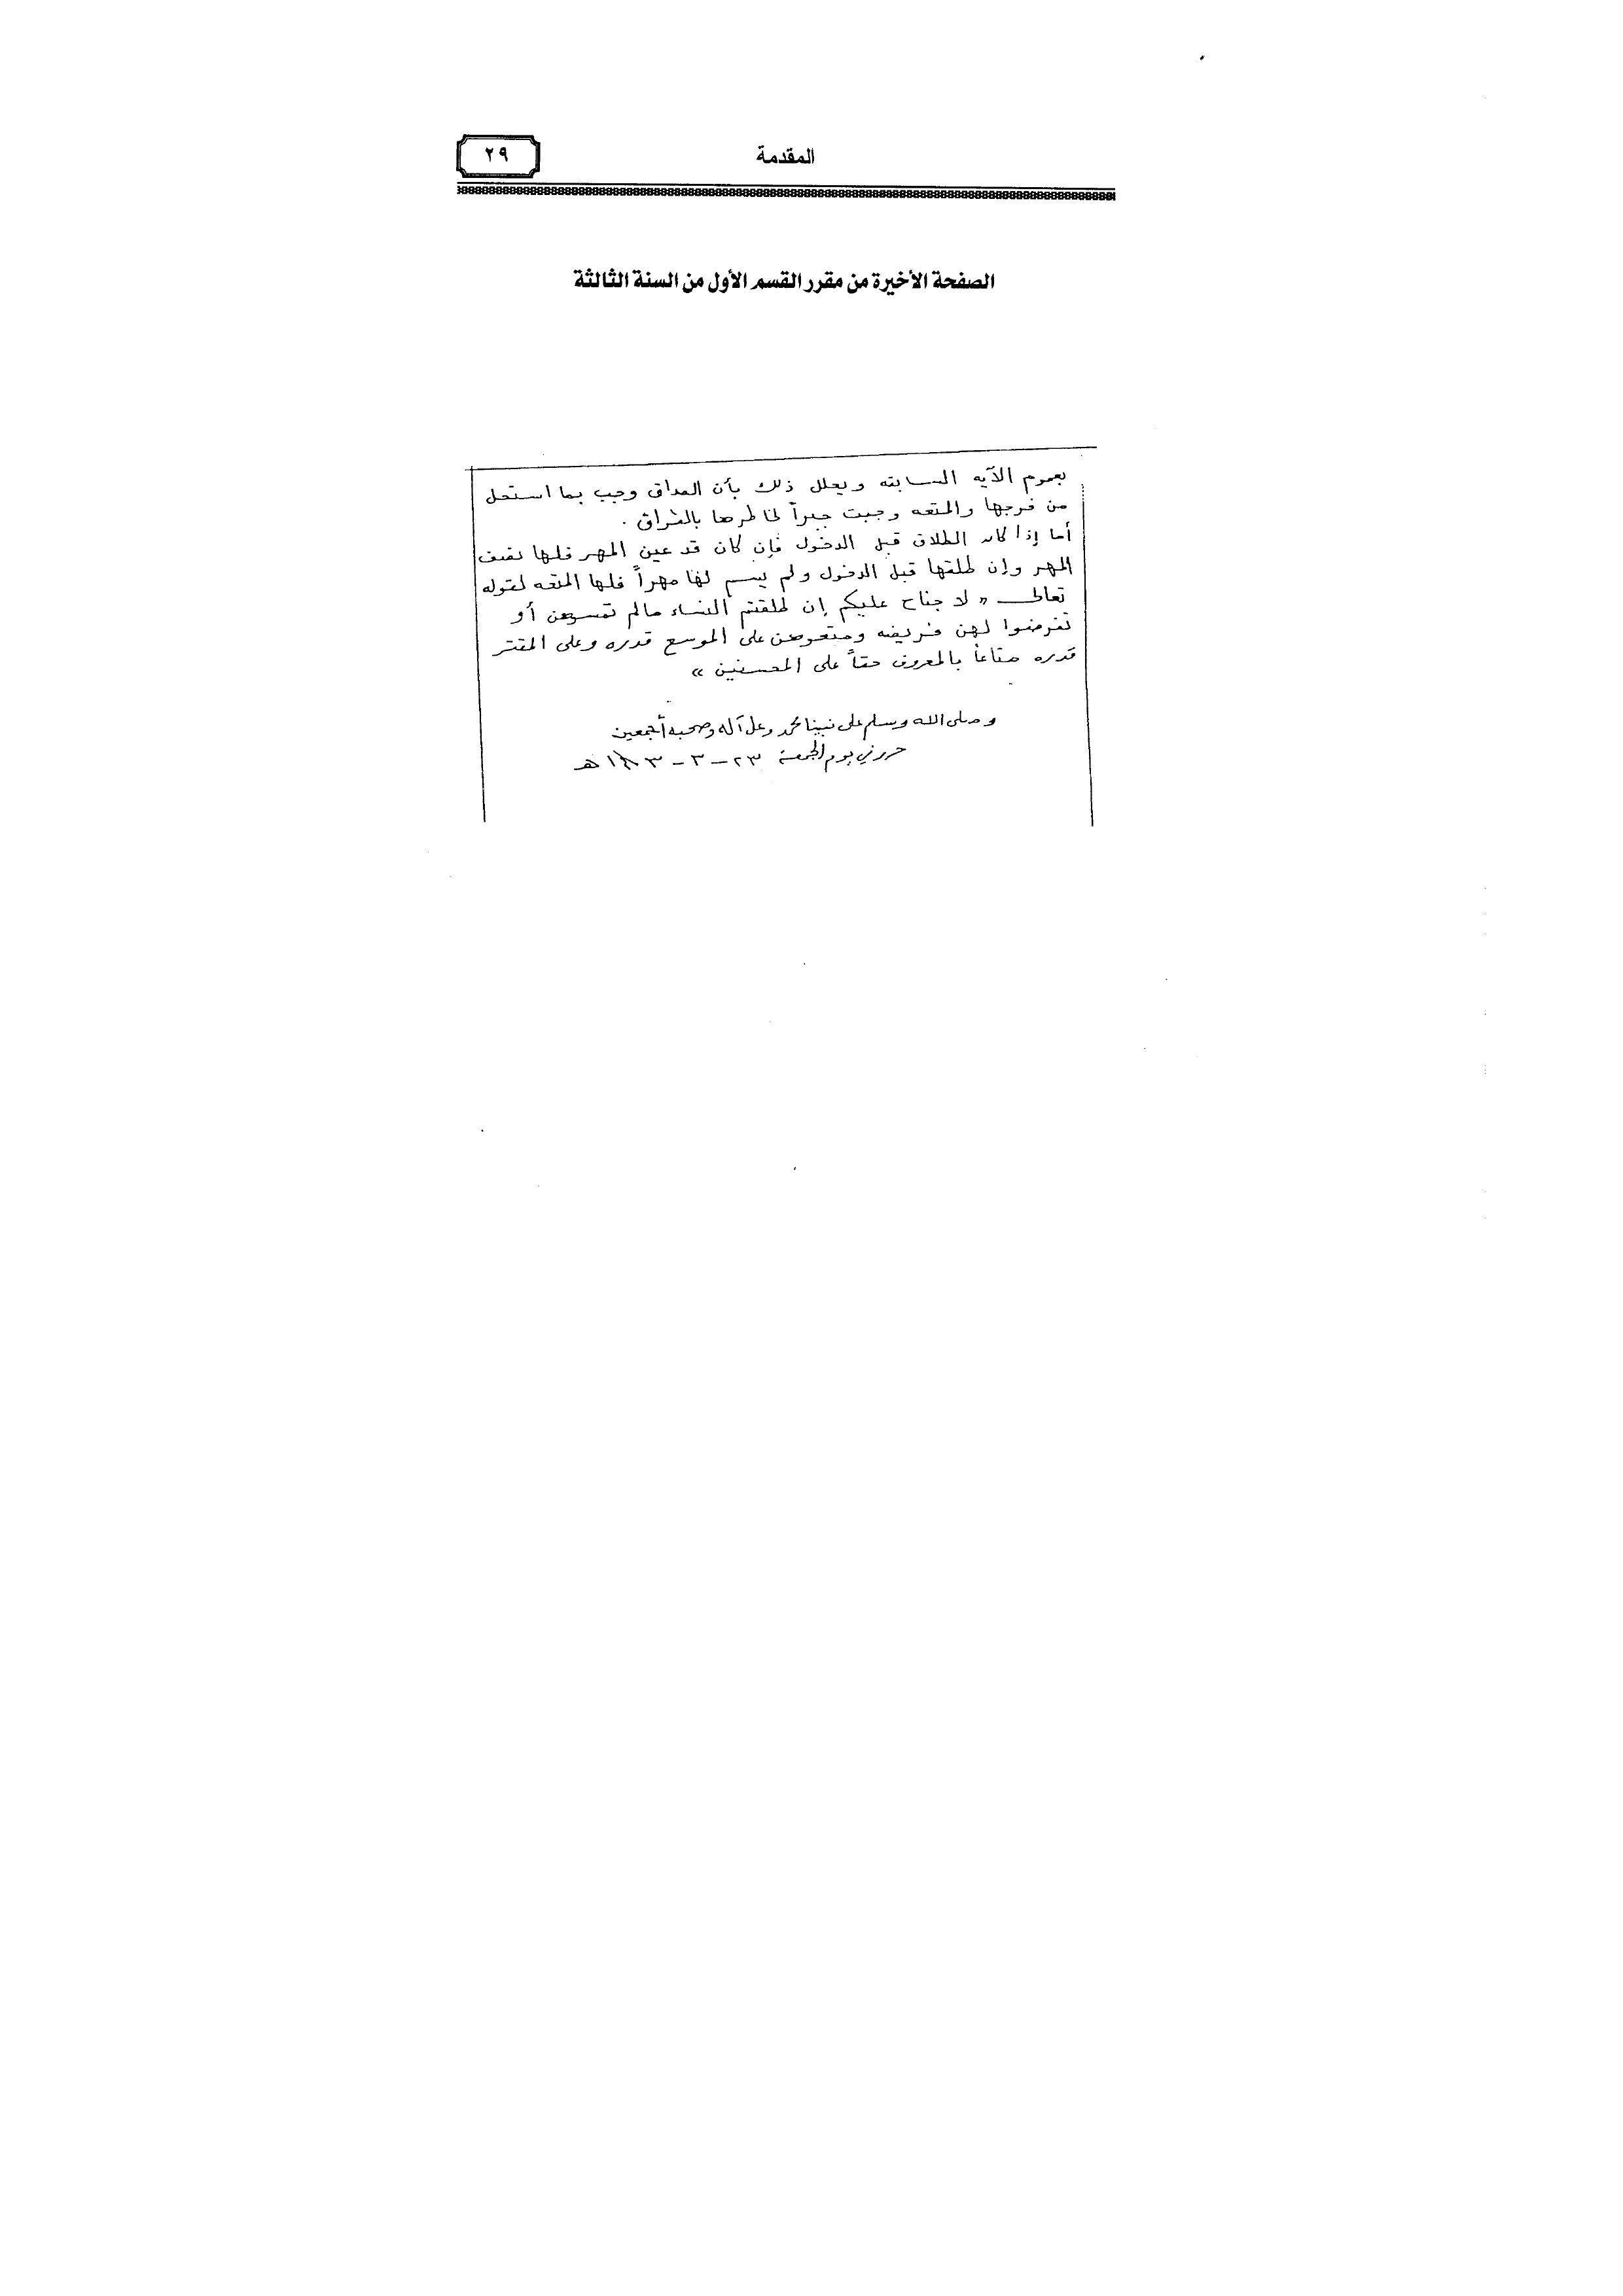 المقدمة
٢٩
الصفحة الأخيرة من مقرر القسم الأول من السنة الثالثة
بعموم الآيه السابقه ويعلل ذلك بأن الصداق وجب بما استحل
من فرجها والمتعه وجبت جبراً لخاطرها بالفراق .
أما إذا كان الطلاق قبل الدخول فإن كان قد عين المهر فلها نصف
المهر وإن طلقها قبل الدخول ولم يسم لها مهراً فلها المتعه لقوله
تعالى « لا جناح عليكم إن طلقتم النساء مالم تمسوهن أو
تفرضوا لهن فريضه ومتعوهن على الموسع قدره وعلى المقتر
قدره متاعاً بالمعروف حقاً على المحسنين »
وصلى الله وسلم على نبينا محمد وعلى آله وصحبه أجمعين
حرر في يوم الجمعة ٢٣ - ٣ -